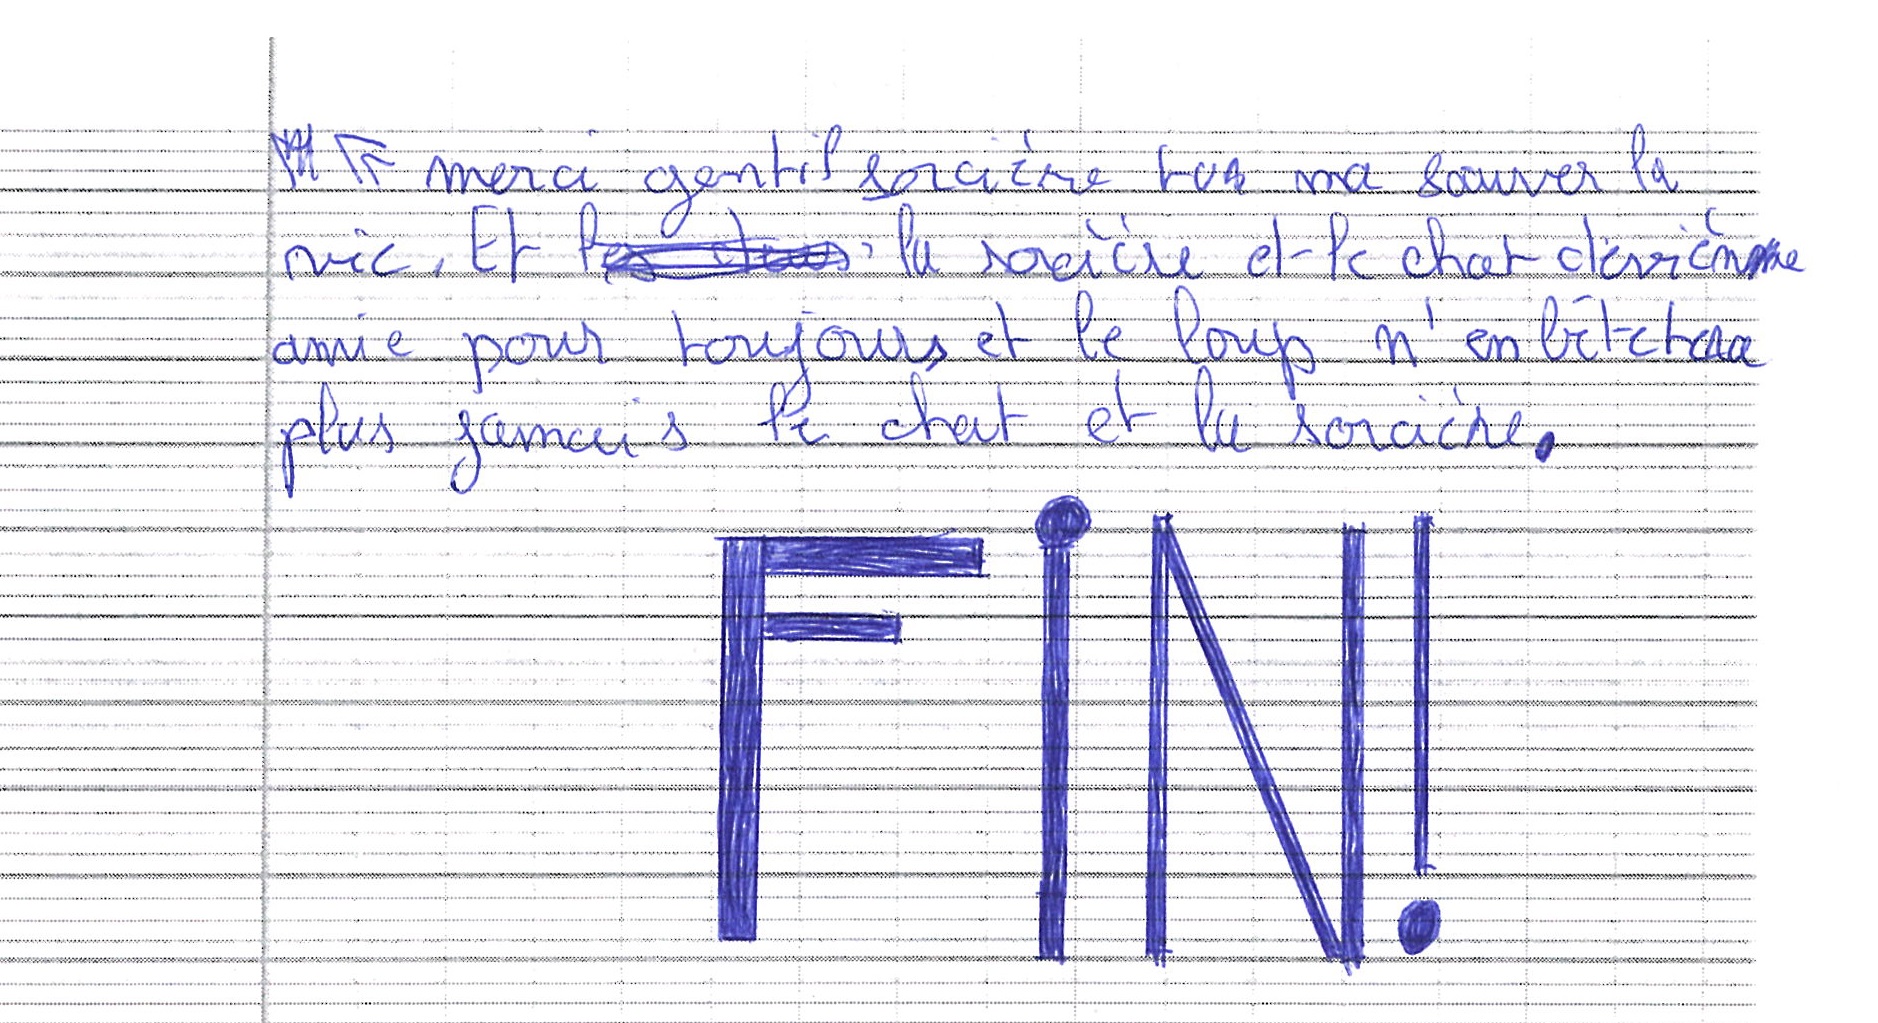 merci gentil sorcière tu as ma sauver la
vie. Et la sorcière et le chat devienne
amie pour toujours et le loup n'enbêtera
plus jamais le chat et la sorcière.
FIN!